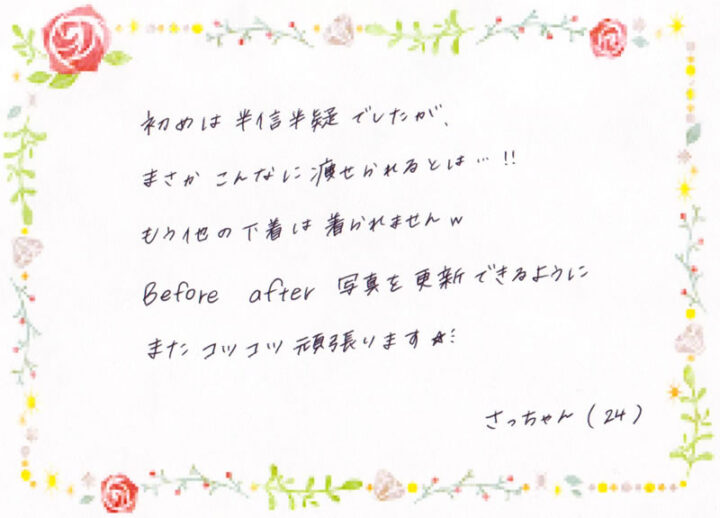 初めは半信半疑でしたが、
まさかこんなに痩せられるとは…!!
もう他の下着は着られませんw
Before after 写真を更新できるように
またコツコツ頑張ります☆
さっちゃん(24)